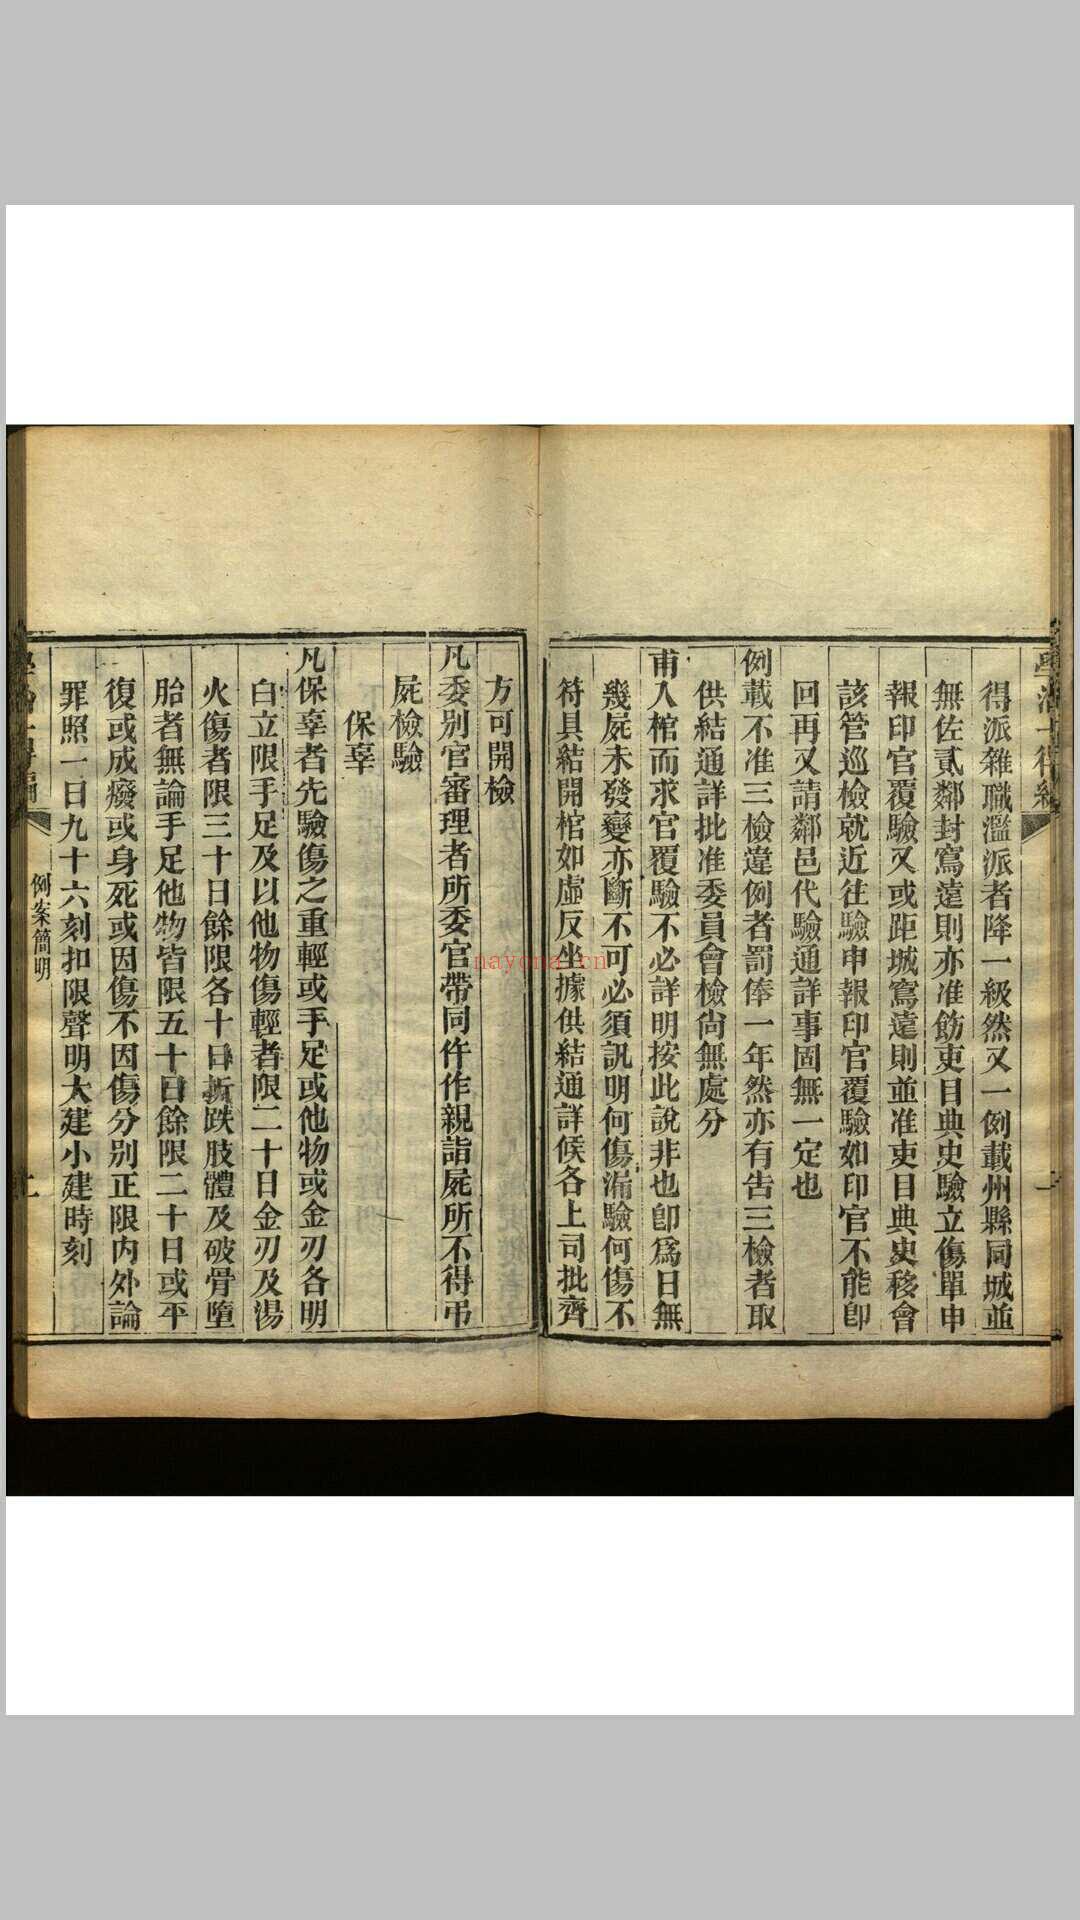 得派雜職濫派者降一級然又一例載州縣同城並
無佐貳鄰封寫遠則亦准飭吏目典史驗立傷單申
報印官覆驗又或距城寫遠則並准吏目典史移會
該管巡檢就近往驗申報印官覆驗如印官不能即
回再又請鄰邑代驗通詳事固無一定也
例載不准三檢違例者罰俸一年然亦有告三檢者取
供結通詳批准委員會檢尚無處分
甫入棺而求官覆驗不必詳明按此說非也即為日無
幾屍未發變亦斷不可必須訊明何傷漏驗何傷不
符具結開棺如虛反坐據供結通詳候各上司批齊
方可開檢
凡委別官審理者所委官帶同仵作親詣屍所不得吊
屍檢驗
保辜
凡保辜者先驗傷之重輕或手足或他物或金刃各明
白立限手足及以他物傷輕者限二十日金刃及湯
火傷者限三十日餘限各十日折跌肢體及破骨墮
胎者無論手足他物皆限五十日餘限二十日或平
復或成癈或身死或因傷不因傷分別正限內外論
罪照一日九十六刻扣限聲明大建小建時刻
例案簡明
nayona.cn